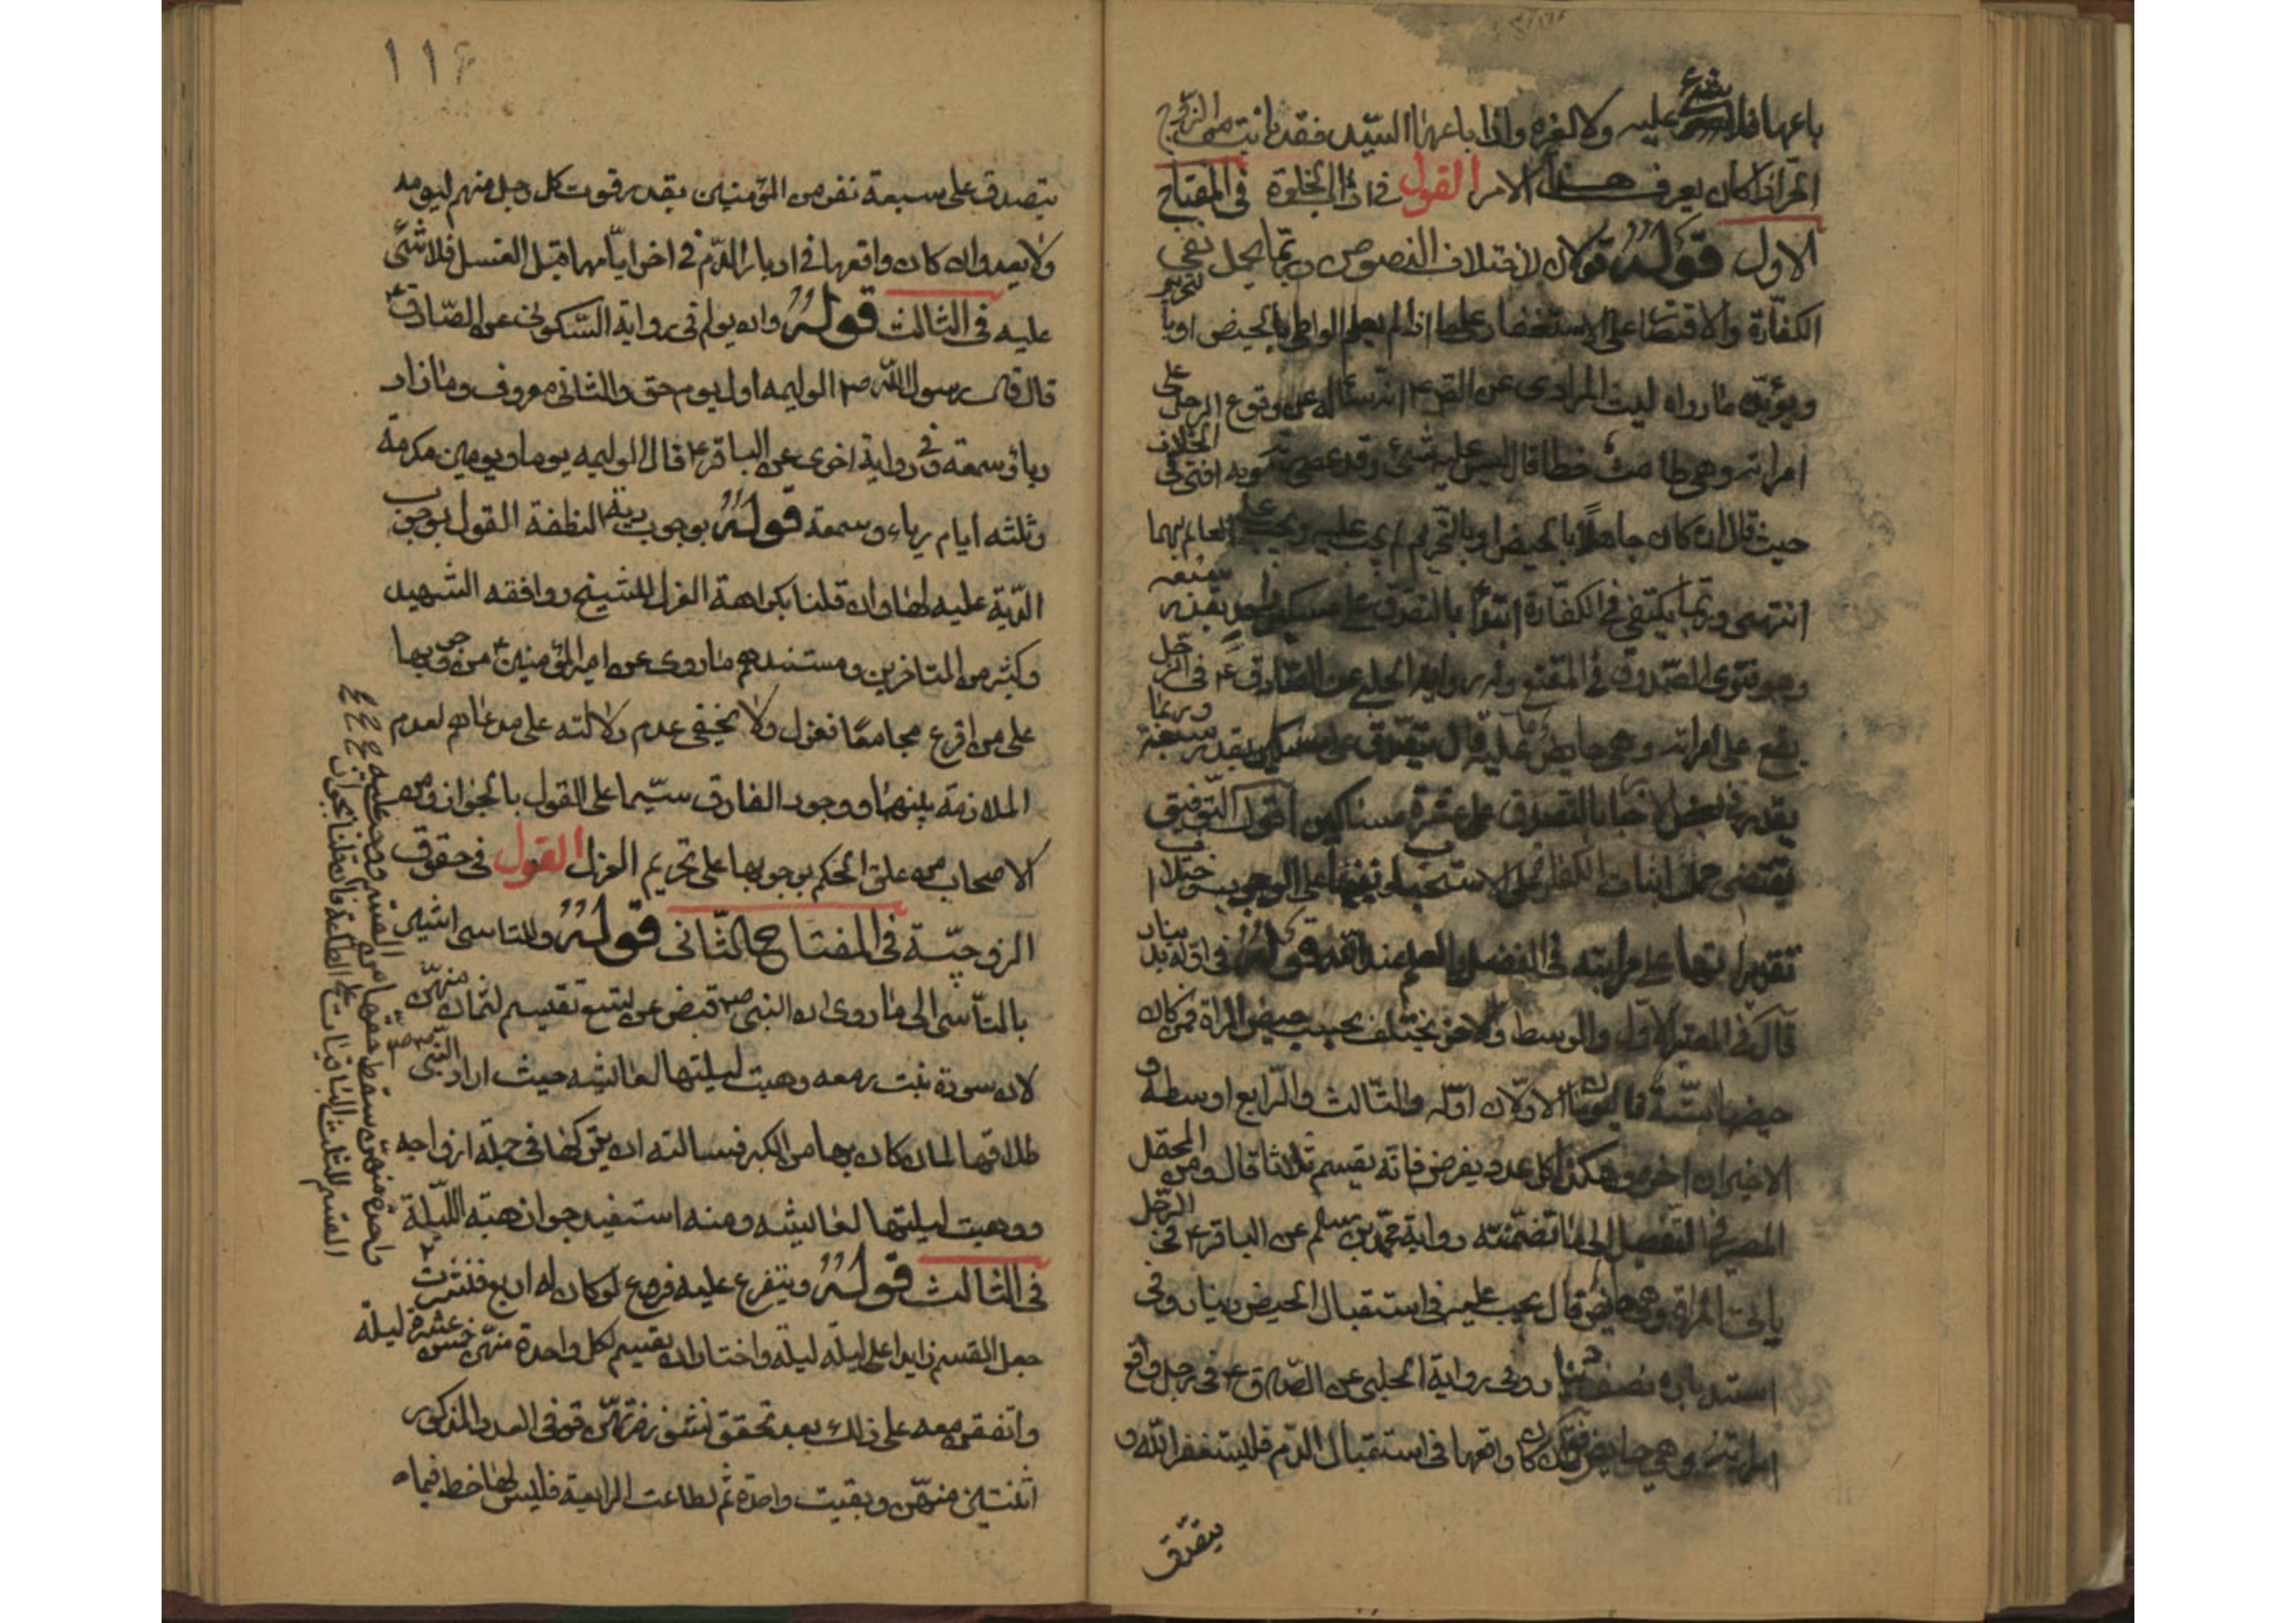 باعها فلا شئ عليه ولا لغره واذا باعها السيد فقد بانت من الزوج
الحر اذا كان يعرف هذا الامر القول فى اداب الخلوة فى المفتاح
الاول قوله قولان لاختلاف النصوص وربما يحمل نفى
الكفارة والاقتصار على الاستغفار على ما اذا لم يعلم الواطى بالحيض او بالتحريم
ويؤيده ما رواه ليث المرادى عن الصـ ع انه سئاله عن وقوع الرجل على
امراته وهى طامث خطا قال ليس عليه شئ وقد عصى ربه وبه افتى فى الخلاف
حيث قال ان كان جاهلا بالحيض او بالتحريم لم يجب عليه ويجب على العالم بهما
انتهى وربما يكتفى فى الكفارة ابتداء بالتصدق على مسكين واحد بقدر شبعه
وهو فتوى الصدوق فى المقنع وبه رواية الحلبى عن الصادق ع فى الرجل
يقع على امراته وهى حايض ما عليه قال يتصدق على مسكين بقدر شبعه وربما
يقدر فى بعض الاخبار بالتصدق على عشرة مساكين اقول التوفيق
يقتضى حمل اثبات الكفارة على الاستحباب ونفيها على الوجوب
فى الفضل والعلم عند الله قوله فى اوله بدينار
قال فى المعتبر الاول والوسط والاخر يختلف بحسب حيض المراة فمن كان
حيضها ستة فاليومان الاولان اوله والثالث والرابع اوسطه و
الاخيران اخره وهكذا كل عدد يفرض فانه يقسم ثلاثا قال ومن المحتمل
المصير فى التفصيل الى ما تضمنته رواية محمد بن مسلم عن الباقر ع فى الرجل
ياتى المراة وهى حايض قال يجب عليه فى استقبال الحيض دينار وفى
استدباره نصف دينار وفى رواية الحلبى عن الصادق ع فى رجل واقع
امراته وهى حايض فقال ان كان واقعها فى استقبال الدم فليستغفر الله و
يتصدق
١١٤
يتصدق على سبعة نفر من المؤمنين بقدر قوت كل رجل منهم ليومه
ولا يعد وان كان واقعها فى ادبار الدم فى اخر ايامها قبل الغسل فلا شئ
عليه فى الثالث قوله وان يولم فى رواية السكونى عن الصادق ع
قال قال رسول الله ص الوليمه اول يوم حق والثانى معروف وما زاد
رياء وسمعة وفى رواية اخرى عن الباقر ع قال الوليمه يوما ويومين مكرمة
وثلثه ايام رياء وسمعة قوله بوجوب دية النطفة القول بوجوب
الدية عليه لها وان قلنا بكراهة العزل للشيخ ووافقه الشهيد
وكثير من المتاخرين ومستندهم ما روى عن امير المؤمنين ع من وجوبها
على من افزع مجامعا فعزل ولا يخفى عدم دلالته على مدعاهم لعدم
الملازمة بينهما ووجود الفارق سيما على القول بالجواز ومن
الاصحاب من علق الحكم بوجوبها على تحريم العزل القول فى حقوق
الزوجية فى المفتاح الثانى قوله وللتاسى اشير
بالتاسى الى ما روى ان النبى ص قبض عن تسع تقسيم لثمان منهن
لان سودة بنت زمعه وهبت ليلتها لعائشه حيث اراد النبى ص
طلاقها لما كان بها من الكبر فسالته ان يتركها فى جملة ازواجه
ووهبت ليلتها لعائشه ومنه استفيد جواز هبة الليلة
فى الثالث قوله ويتفرع عليه فروع لو كان له اربع فنشزت
جعل القسم زايدا على ليلة ليلة واختار ان يقسم لكل واحدة منهن خمس عشرة ليلة
واتفقن معه على ذلك بعد تحقق نشوزهن فوفى العدد المذكور
اثنتين منهن وبقيت واحدة ثم اطاعت الرابعة فليس لها خط فيما
واحدة منهن سقط حقها من القسم
القسم للثلث الباقيات